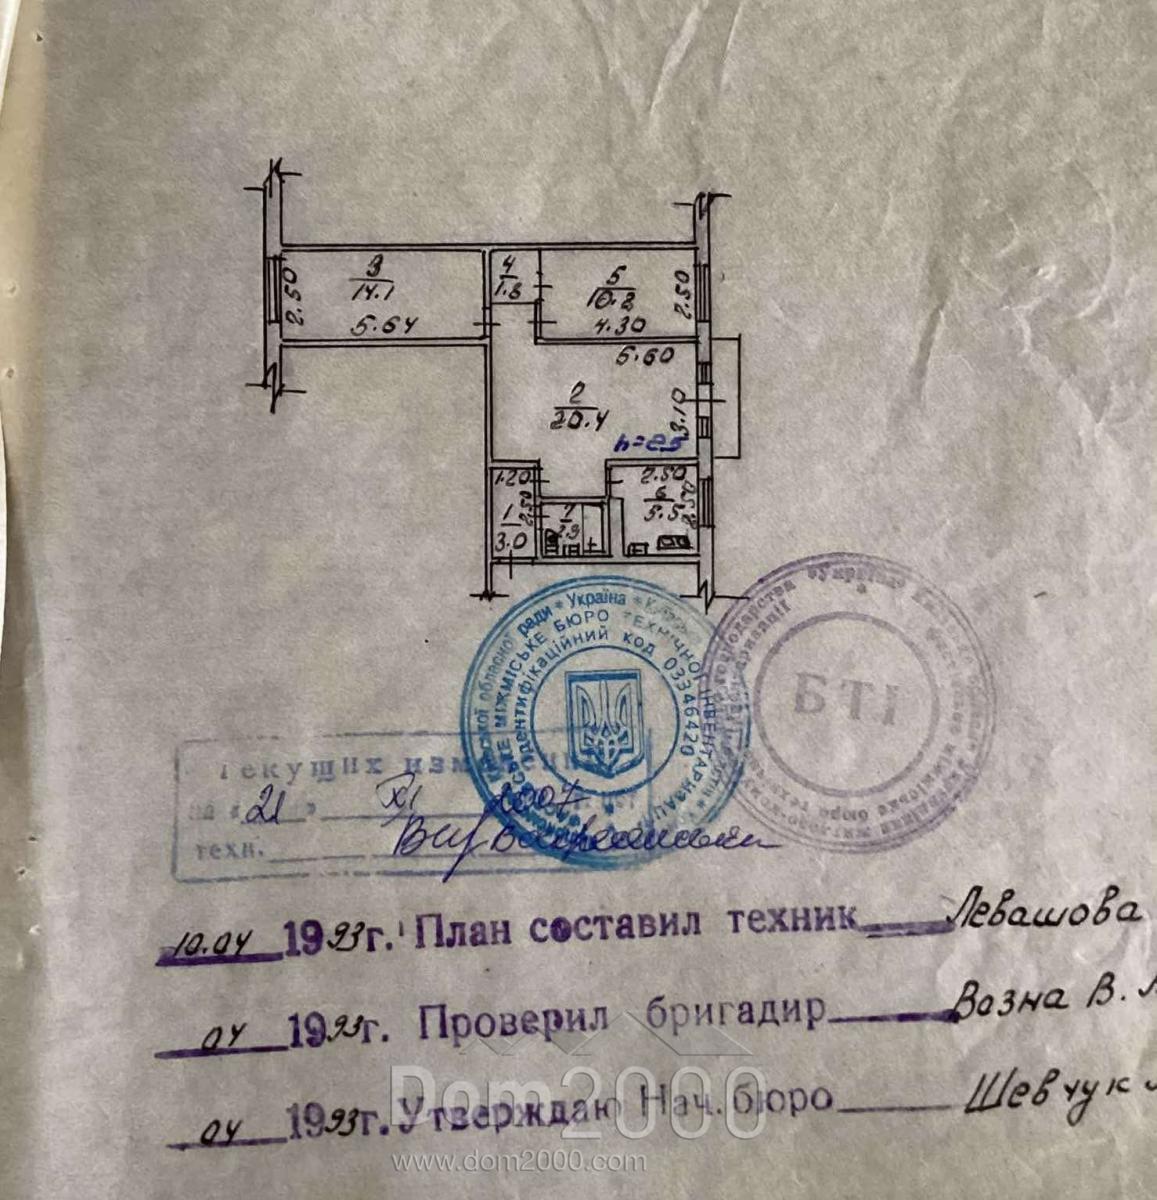 3
14.1
2.50
5.64
4
1.8
5
10.8
2.50
4.30
5.60
2
20.4
3.10
h=2.5
1.20
2.50
1
3.0
7
2.50
6
5.5
2.50
* Україна *
МІЖМІСЬКЕ БЮРО ТЕХНІЧНОЇ ІНВЕНТАРИЗАЦІЇ
Ідентифікаційний код 03346420
БТІ
Текущих
на «21» XI 2007
техн.
10.04 1993г. План составил техник Левашова
04 1993г. Проверил бригадир Возна В.
04 1993г. Утверждаю Нач. бюро Шевчук
Dom2000
www.dom2000.com